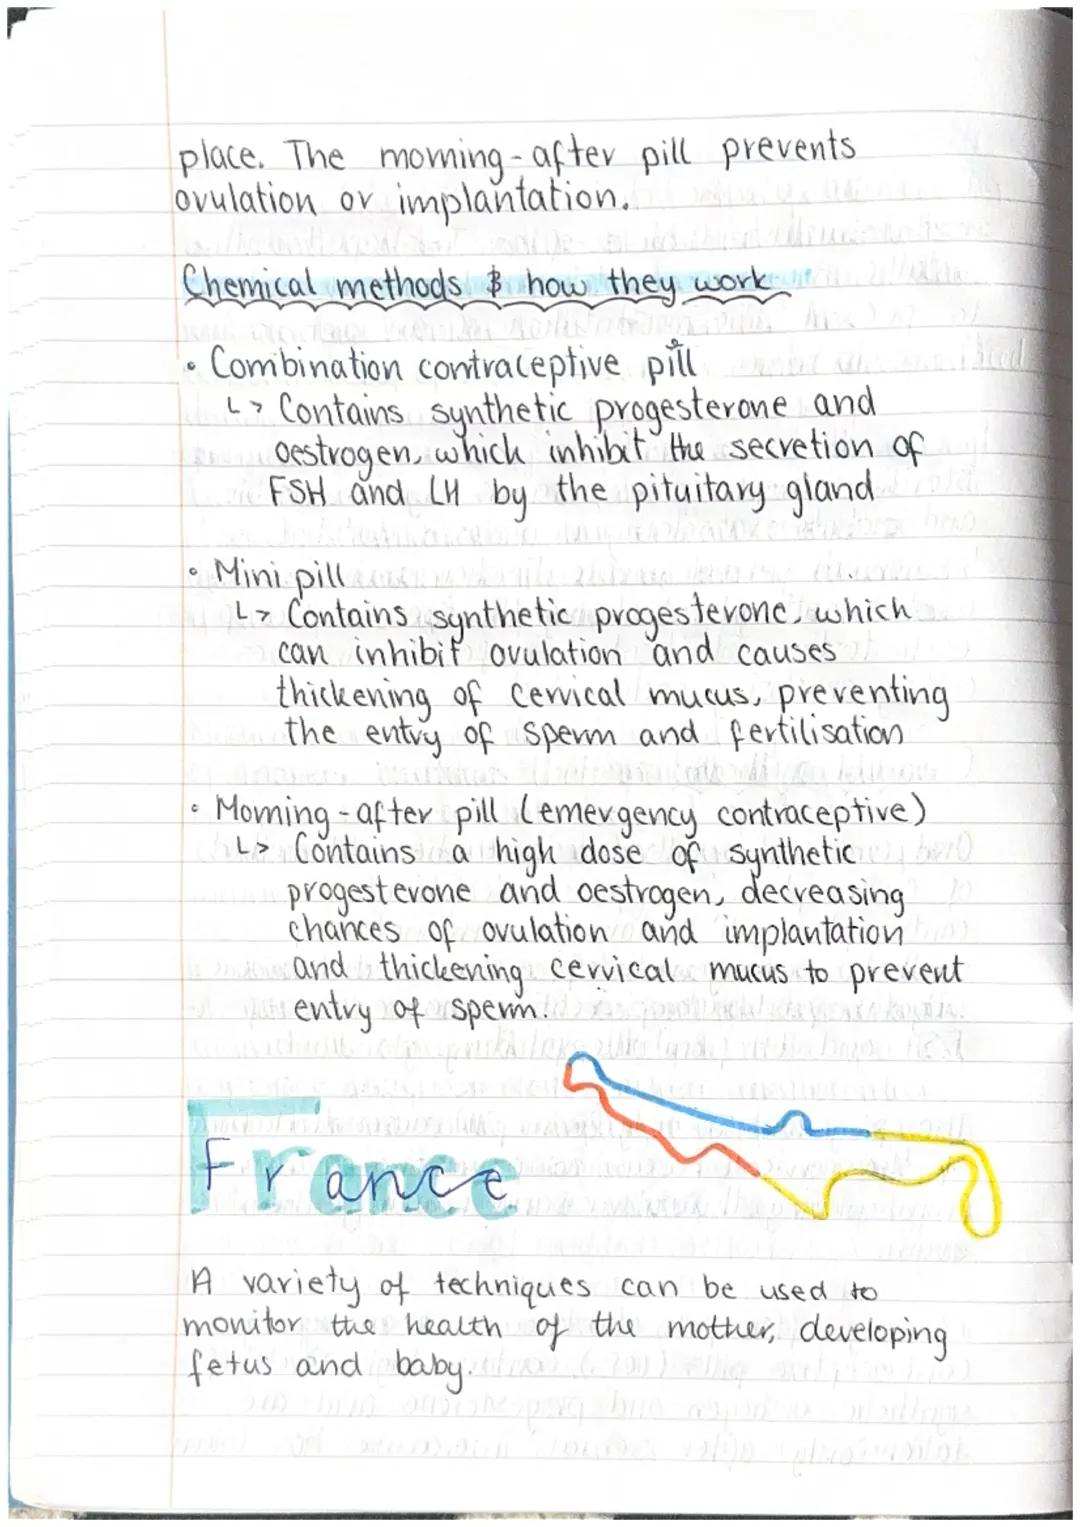 place. The morning-after pill prevents
ovulation or implantation.
Chemical methods & how they work
• Combination contraceptive pill
↳ Contains synthetic progesterone and
oestrogen, which inhibit the secretion of
FSH and LH by the pituitary gland
• Mini pill
↳ Contains synthetic progesterone, which
can inhibit ovulation and causes
thickening of cervical mucus, preventing
the entry of sperm and fertilisation
• Morning-after pill (emergency contraceptive)
↳ Contains a high dose of synthetic
progesterone and oestrogen, decreasing
chances of ovulation and implantation
and thickening cervical mucus to prevent
entry of sperm.
France
A variety of techniques can be used to
monitor the health of the mother, developing
fetus and baby.